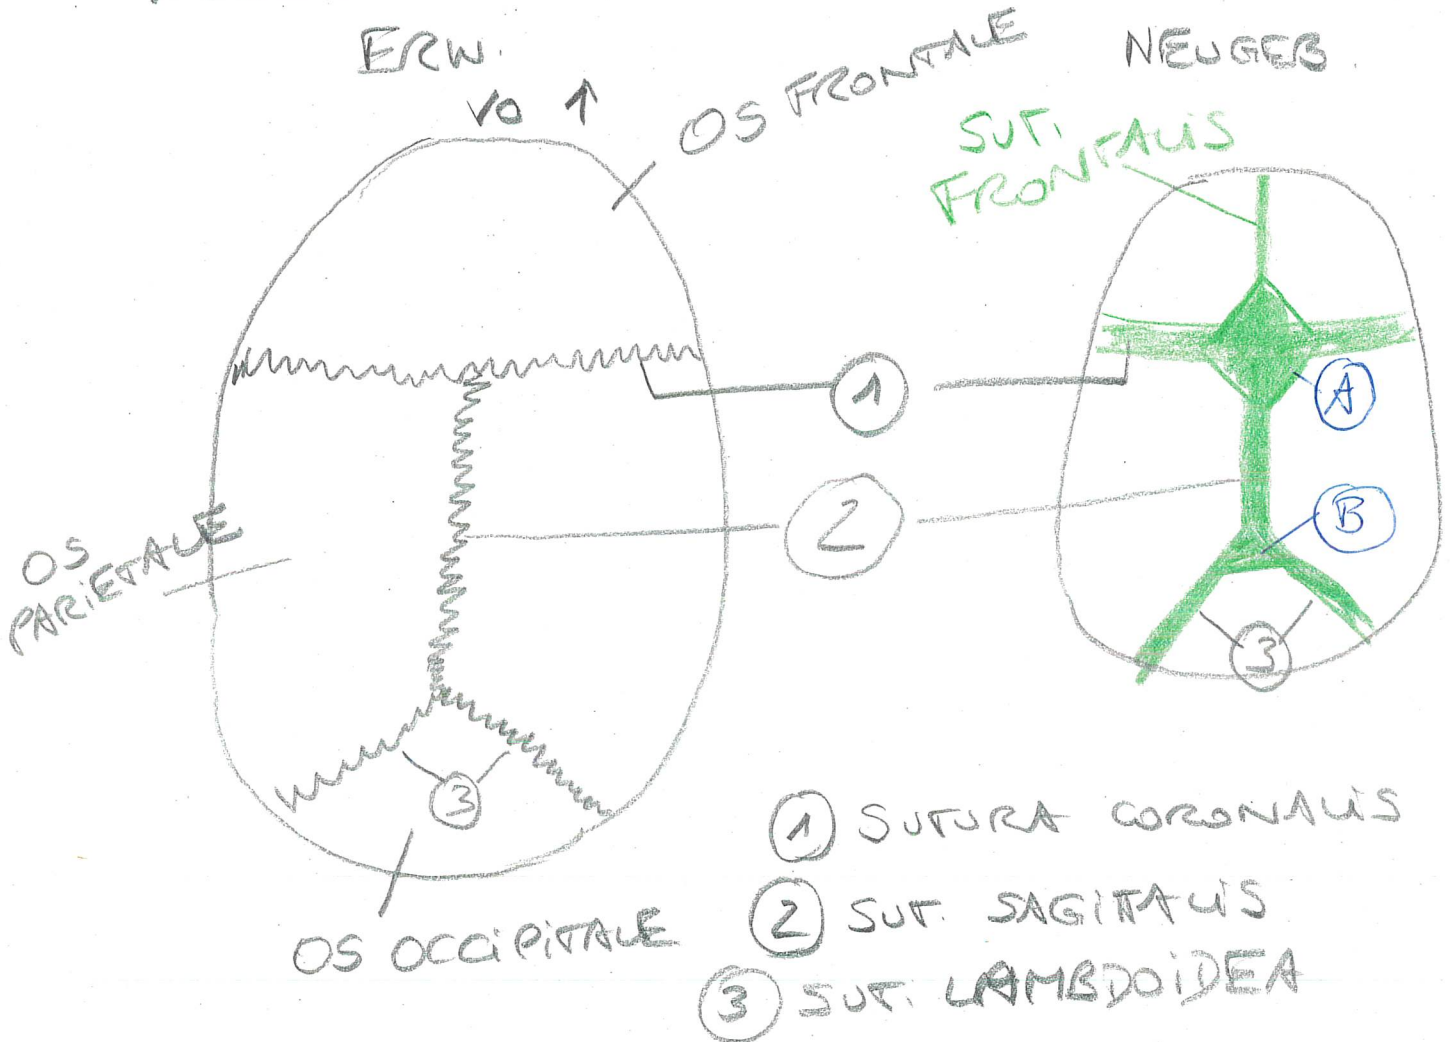 ERW.
VO ↑
OS FRONTALE
NEUGEB.
SUT.
FRONTALIS
1
A
2
B
OS
PARIETALE
3
3
OS OCCIPITALE
1 SUTURA CORONALIS
2 SUT. SAGITTALIS
3 SUT. LAMBDOIDEA